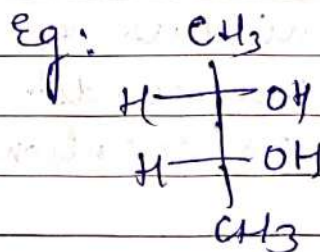 Eg:
CH3
H OH
H OH
CH3